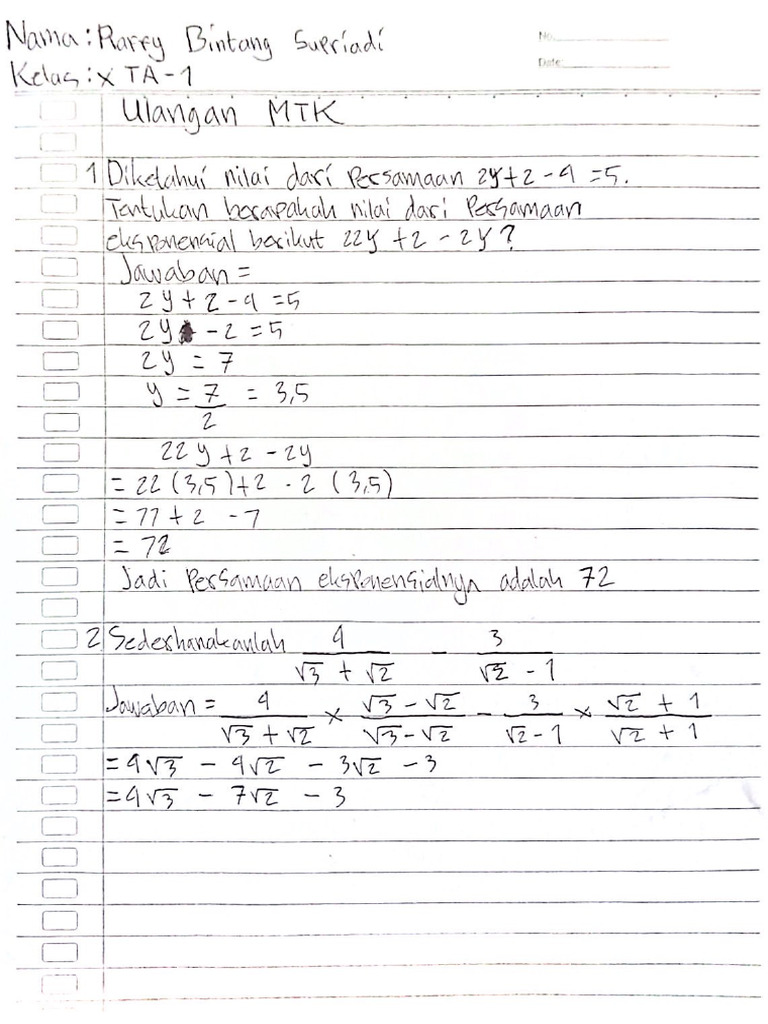 Nama : Rarry Bintang Supriadi
No.
Kelas : X TA-1
Date:
Ulangan MTK
1 Diketahui nilai dari Persamaan 2y+2-4=5.
Tentukan berapakah nilai dari Persamaan
eksponensial berikut 22y +2 - 2y?
Jawaban =
2y+2-4=5
2y -2=5
2y = 7
y = 7/2 = 3,5
22y+2 -2y
= 22 (3,5)+2 - 2 (3,5)
= 77 + 2 - 7
= 72
Jadi Persamaan eksponensialnya adalah 72
2 Sederhanakanlah 4/(√3 + √2) - 3/(√2 - 1)
Jawaban = 4/(√3 + √2) × (√3 - √2)/(√3 - √2) - 3/(√2 - 1) × (√2 + 1)/(√2 + 1)
= 4√3 - 4√2 - 3√2 - 3
= 4√3 - 7√2 - 3